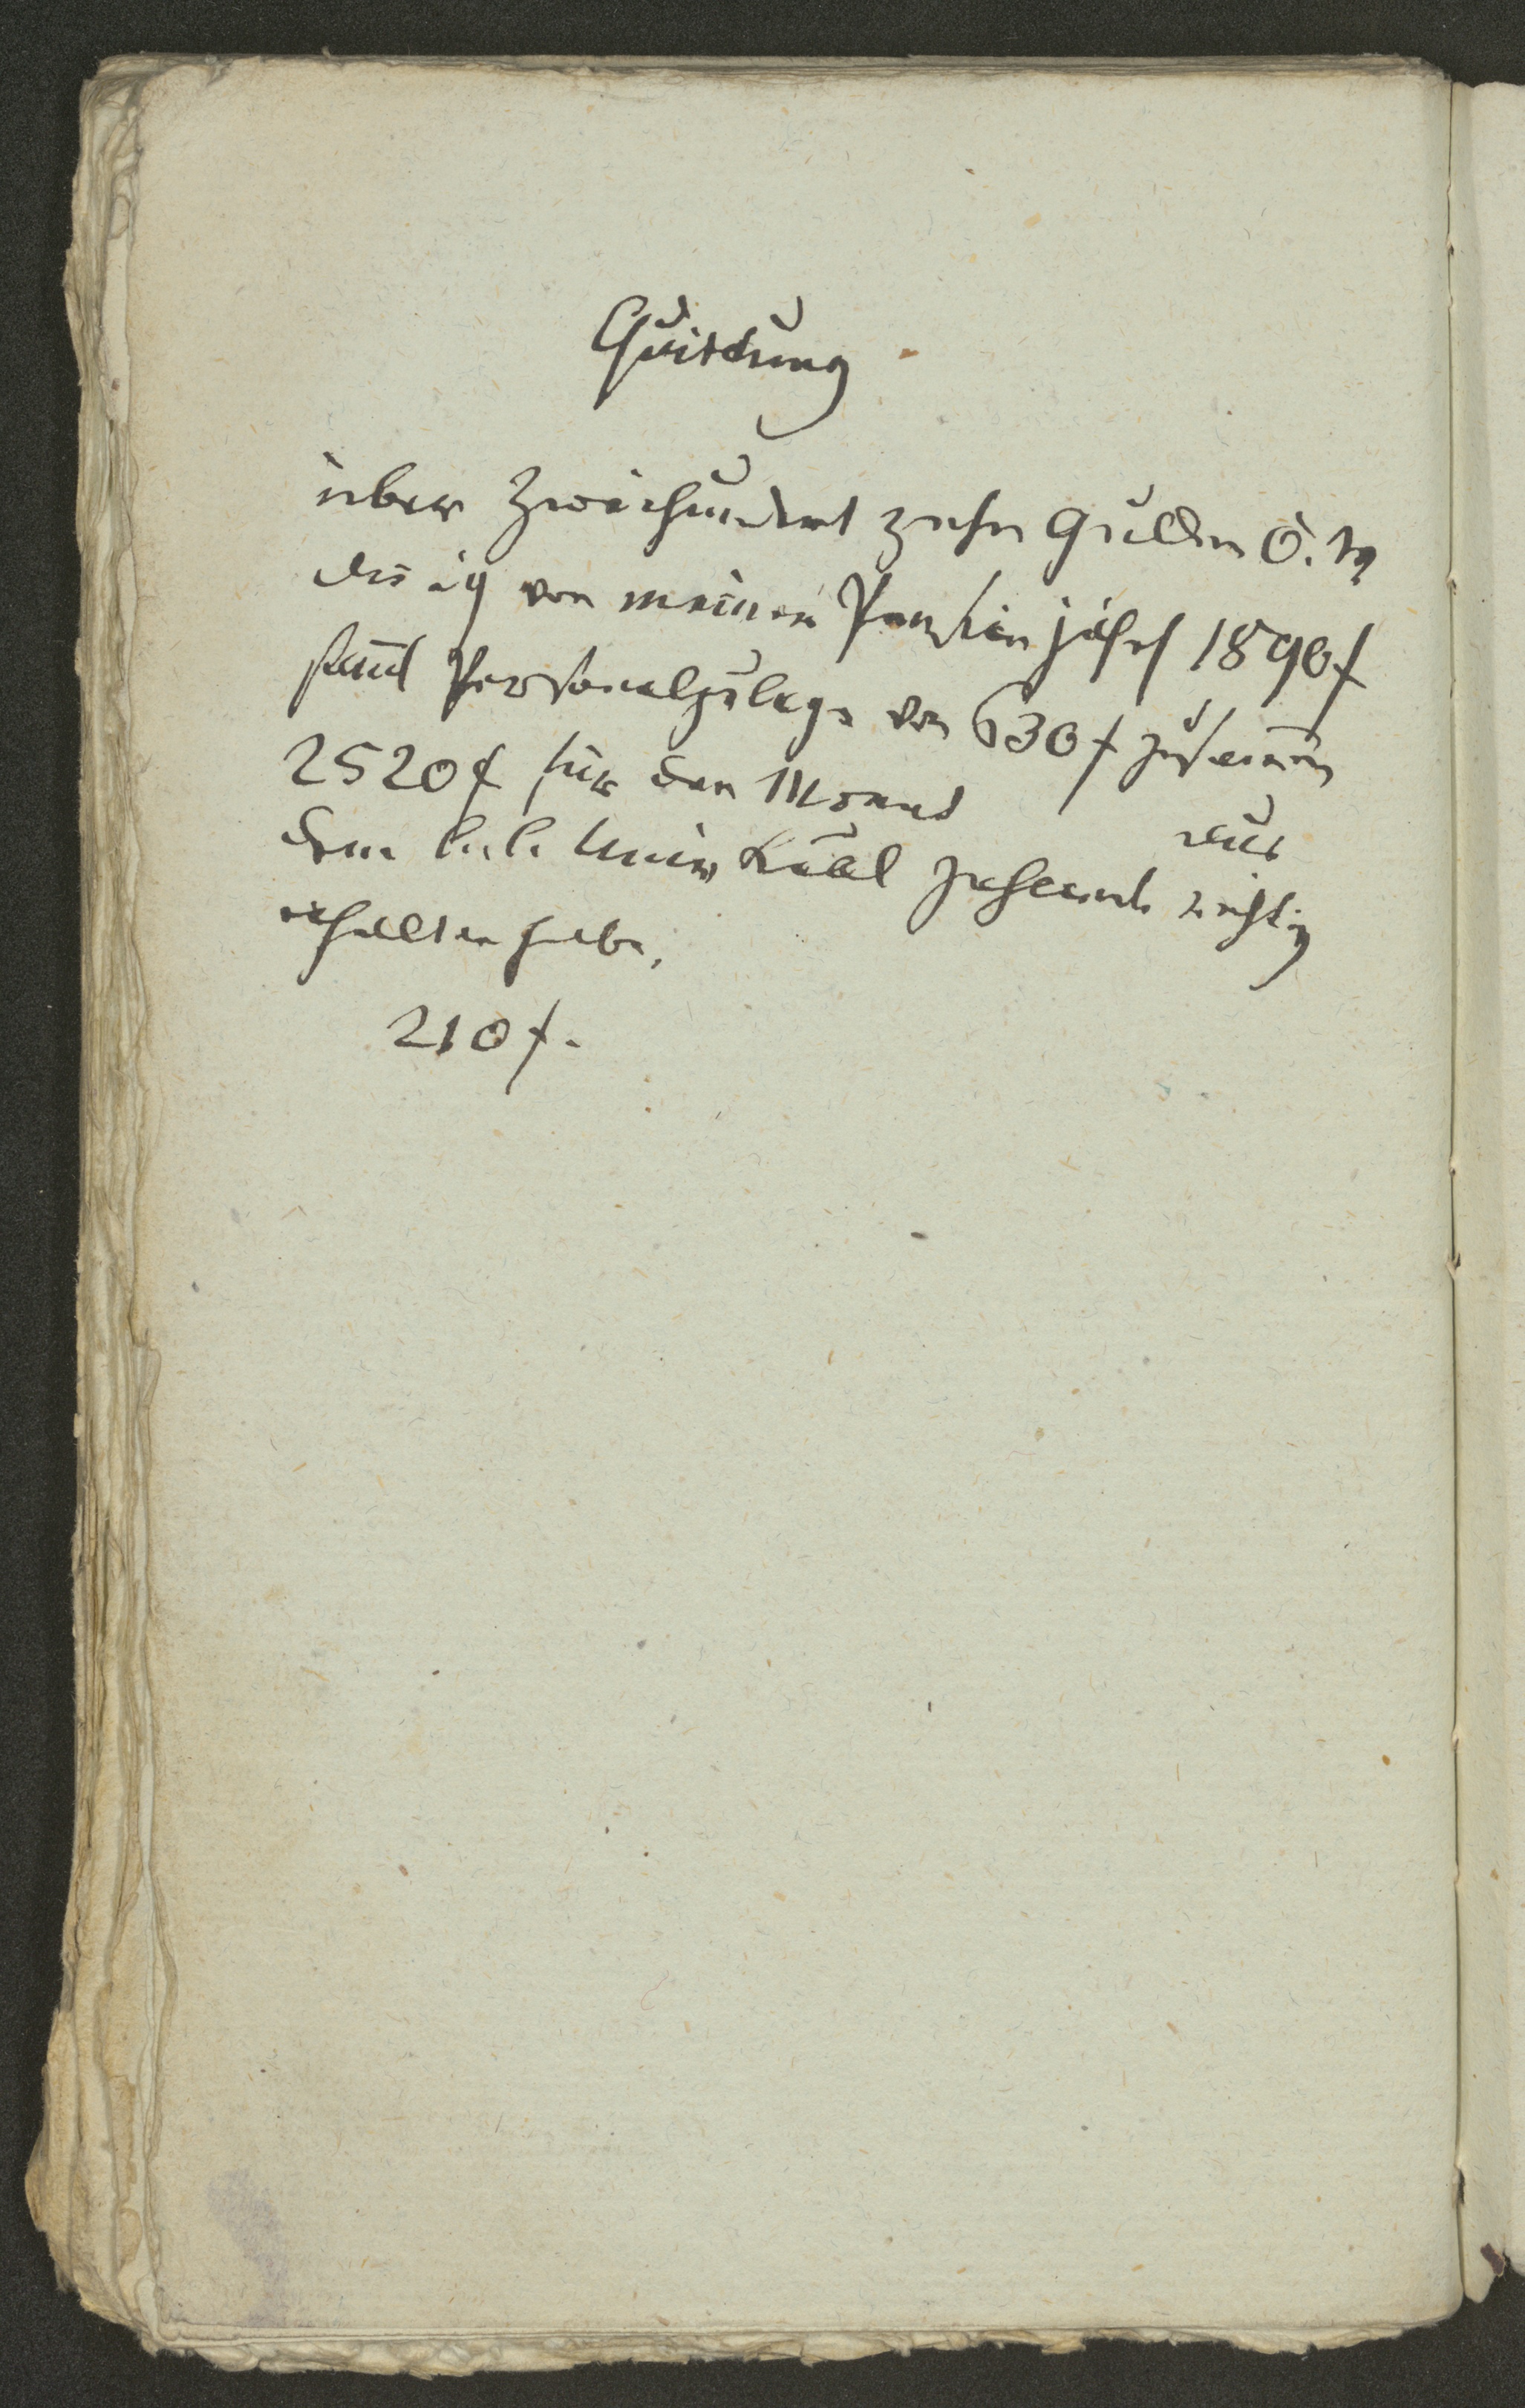 Quittung
über Zweihundert zehn Gulden Ö. W
die ich von meiner Pension jährl 1890 f
sammt Personalzulage von 630 f zusammen
2520 f für den Monat aus
dem k. k. Univ Kaal richtig
erhalten habe.
210 f.